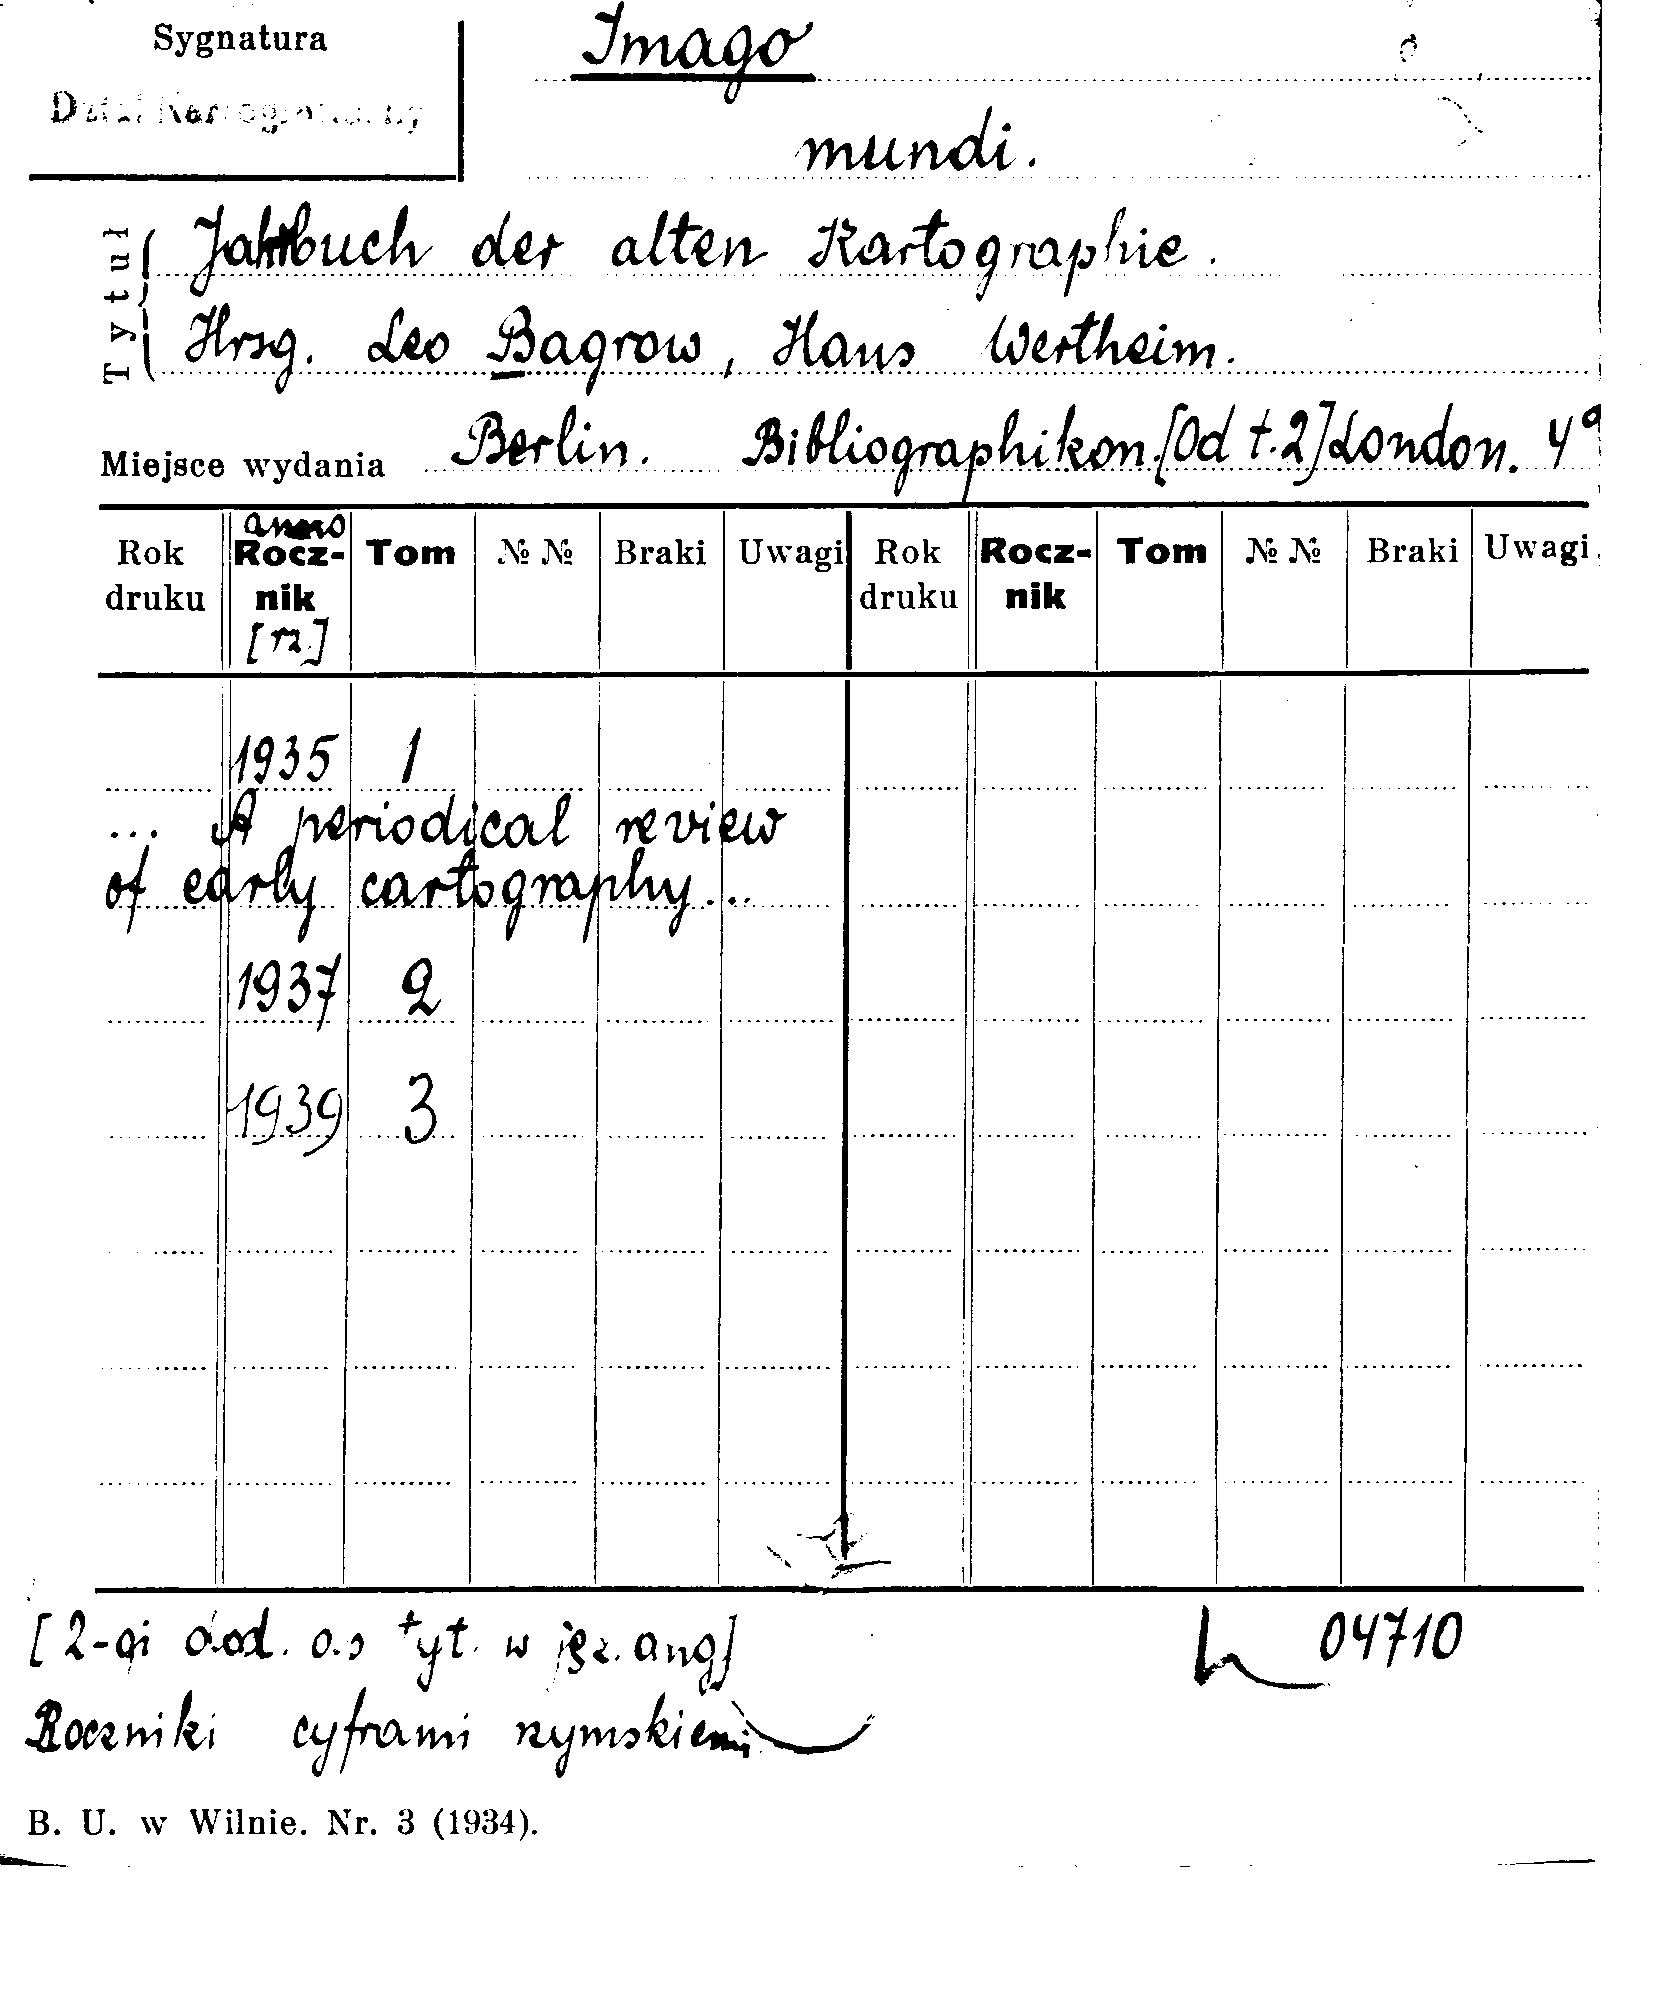 Sygnatura
Imago
Dział Kartograficzny
mundi.
Tytuł
Jahrbuch der alten Kartographie.
Hrsg. Leo Bagrow, Hans Wertheim.
Miejsce wydania Berlin. Bibliographikon. [Od t. 2] London. 4º
anno
Rok druku Rocznik Tom № № Braki Uwagi Rok druku Rocznik Tom № № Braki Uwagi
[rz.]
1935 1
... A periodical review
of early cartography...
1937 2
1939 3
[2-gi dod. tyt. w jęz. ang]
04710
Roczniki cyframi rzymskiemi
B. U. w Wilnie. Nr. 3 (1934).